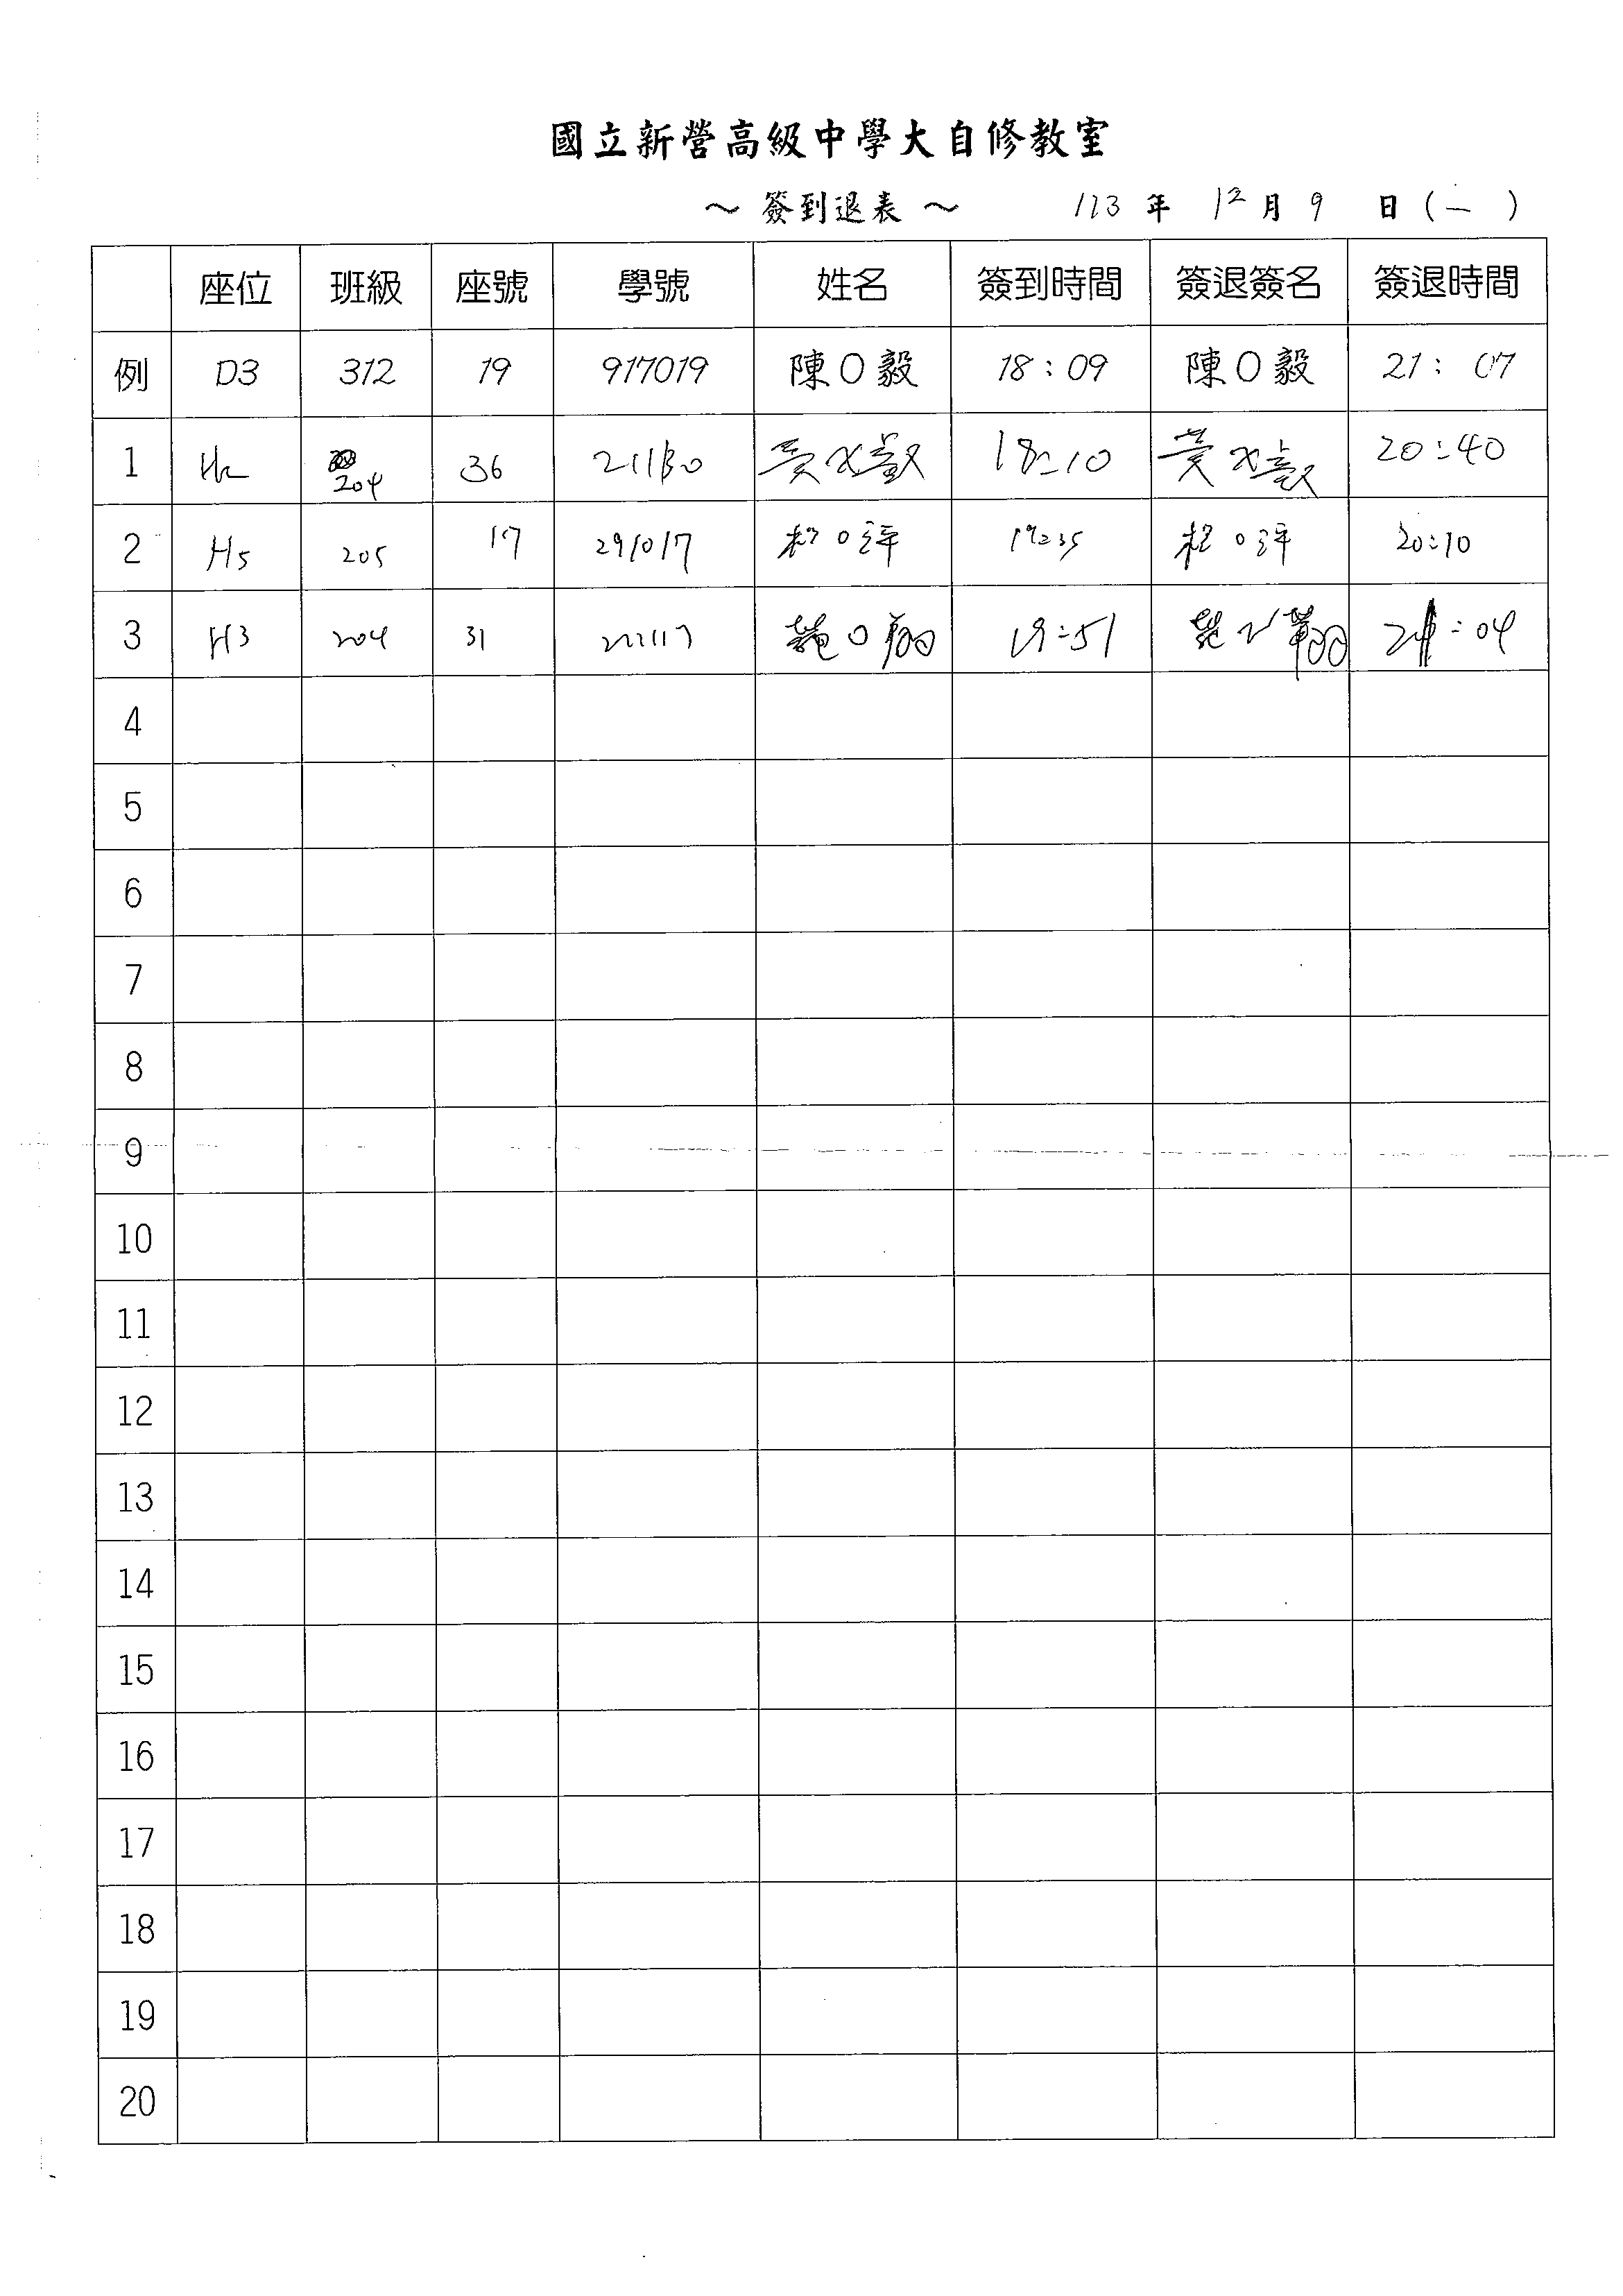 國立新營高級中學大自修教室
～ 簽到退表 ～ 113 年 12 月 9 日 (一)
座位 班級 座號 學號 姓名 簽到時間 簽退簽名 簽退時間
例 D3 312 19 917019 陳O毅 18:09 陳O毅 21:07
1 204 36 18:10 20:40
2 H5 205 17 O 19:35 O 20:10
3 H3 204 31 O 19:51 :04
4
5
6
7
8
9
10
11
12
13
14
15
16
17
18
19
20